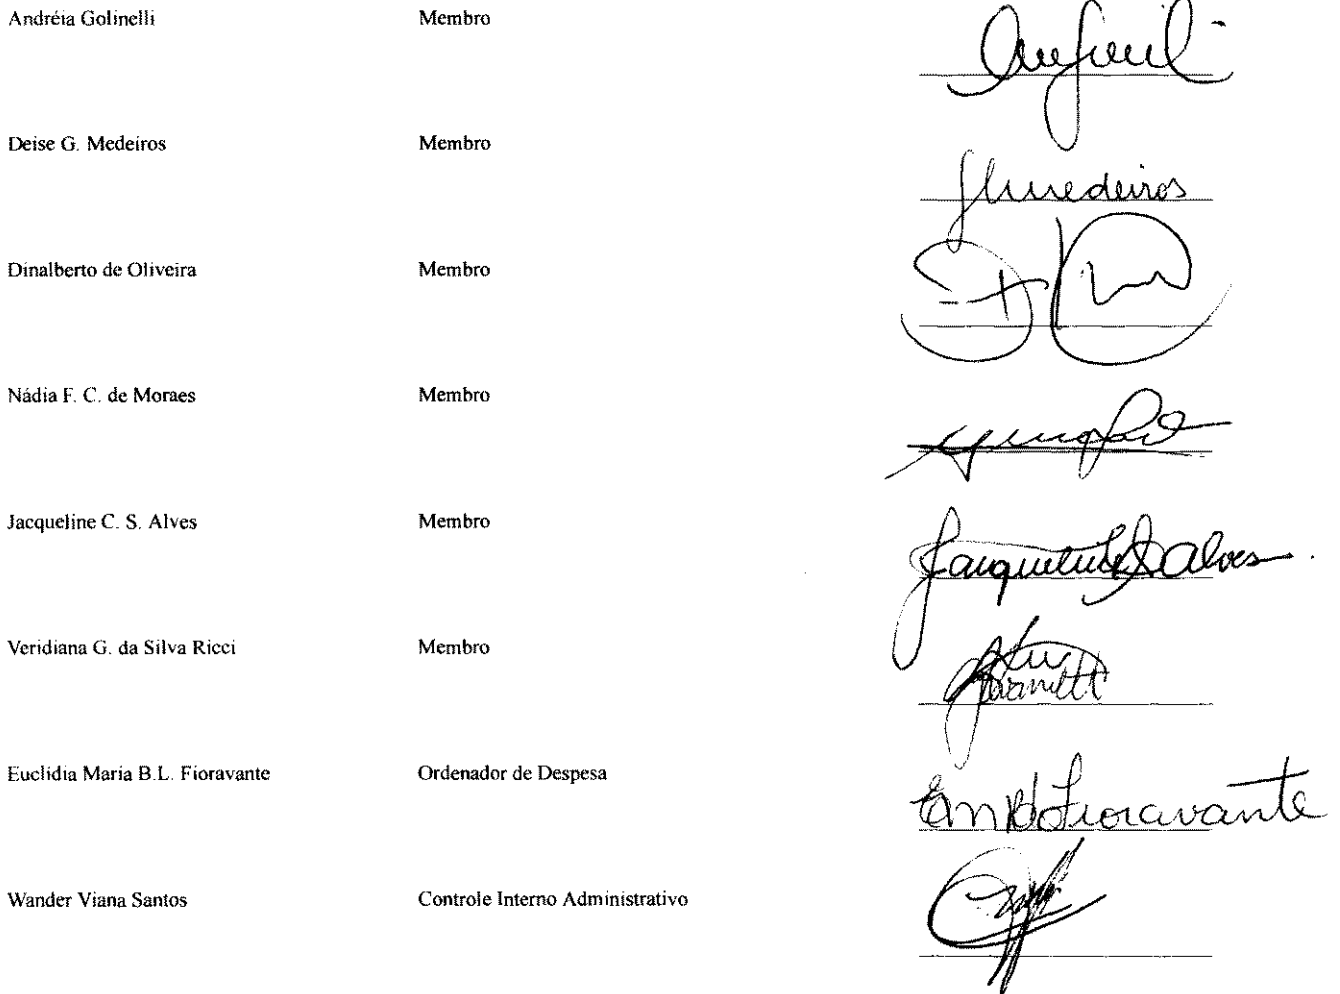 Andréia Golinelli Membro
Deise G. Medeiros Membro
medeiros
Dinalberto de Oliveira Membro
Nádia F. C. de Moraes Membro
Jacqueline C. S. Alves Membro
Jacqueline Alves
Veridiana G. da Silva Ricci Membro
Euclidia Maria B.L. Fioravante Ordenador de Despesa
Fioravante
Wander Viana Santos Controle Interno Administrativo